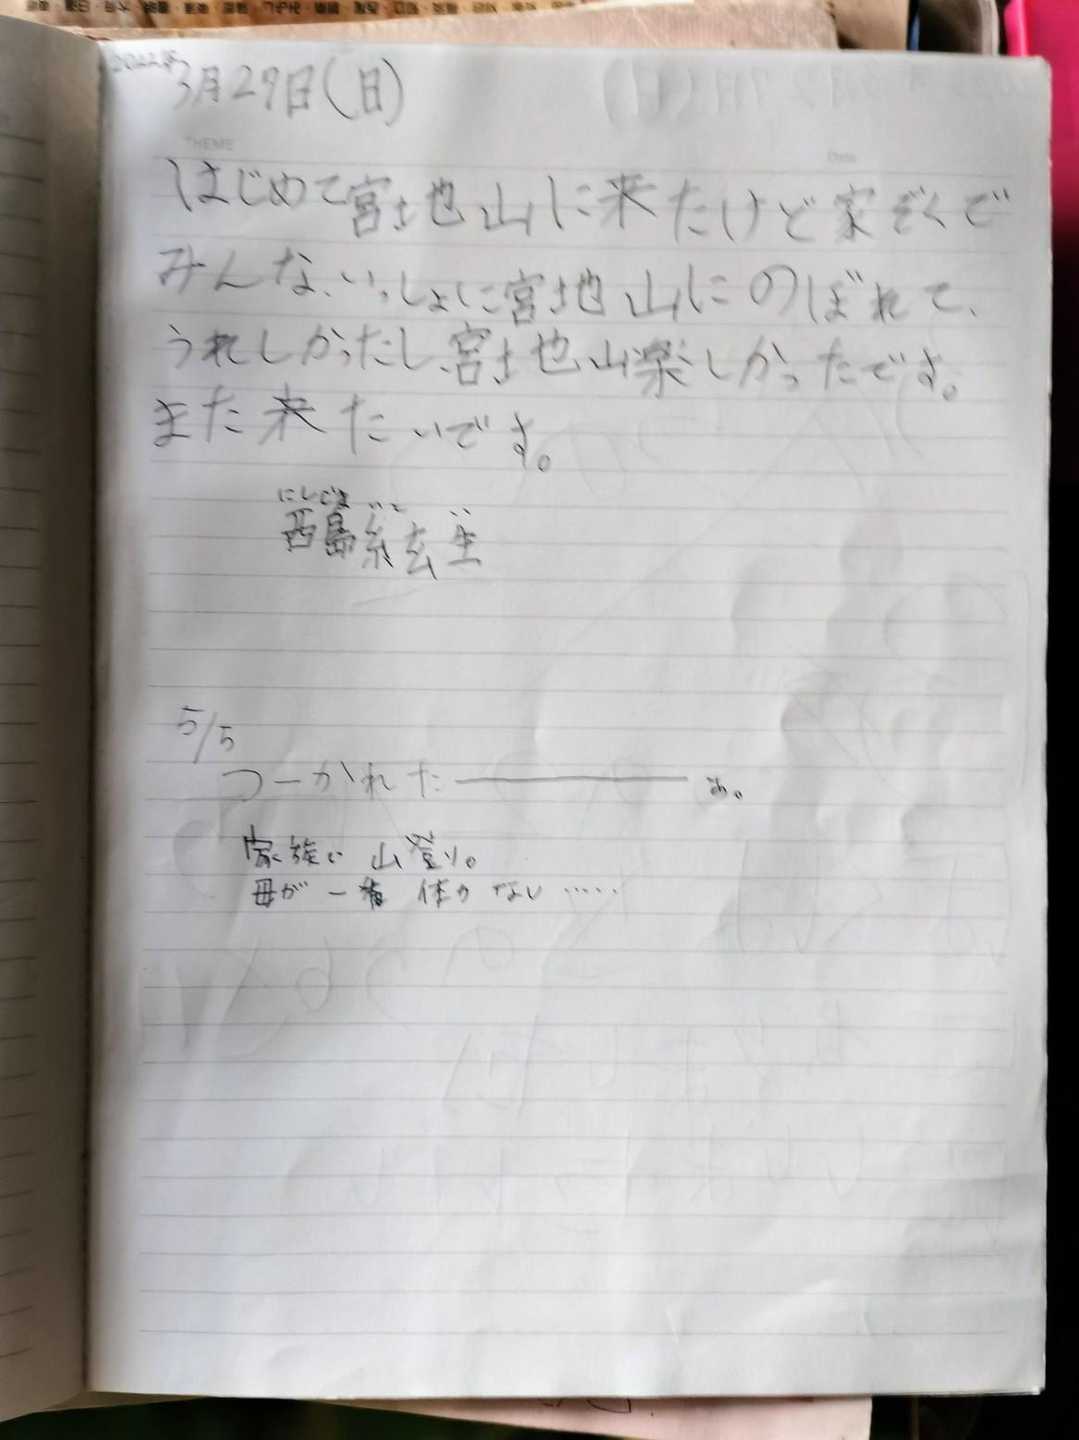 2022年
3月29日(日)
THEME
Date
はじめて宮地山に来たけど家ぞくで
みんな、いっしょに宮地山にのぼれて、
うれしかったし、宮地山楽しかったです。
また来たいです。
にしじま いと い
西島 絃生
5/5
つーかれた―――――ぁ。
家族で 山登り。
母が 一番 体力 ない……